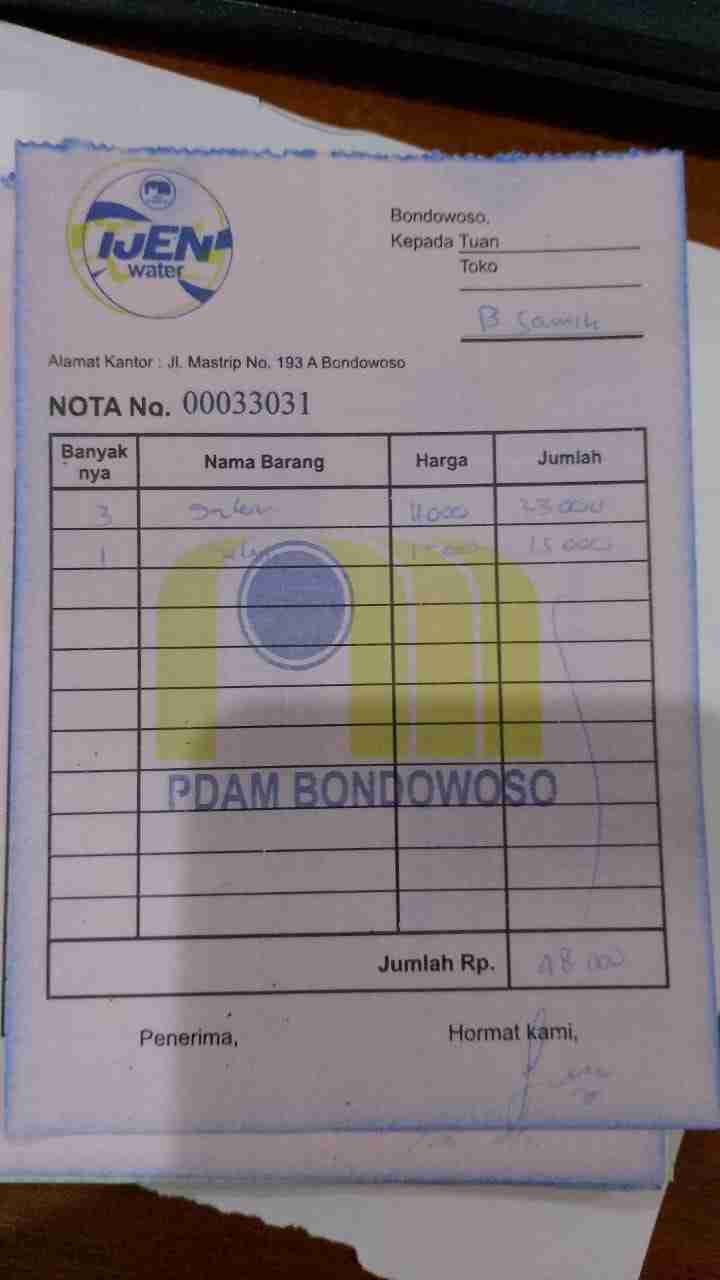 IJEN
water
Bondowoso,
Kepada Tuan
Toko
B
Alamat Kantor : Jl. Mastrip No. 193 A Bondowoso
NOTA No. 00033031
Banyak nya Nama Barang Harga Jumlah
3 11000 33000
1 15000 15000
PDAM BONDOWOSO
Jumlah Rp. 48 000
Penerima, Hormat kami,